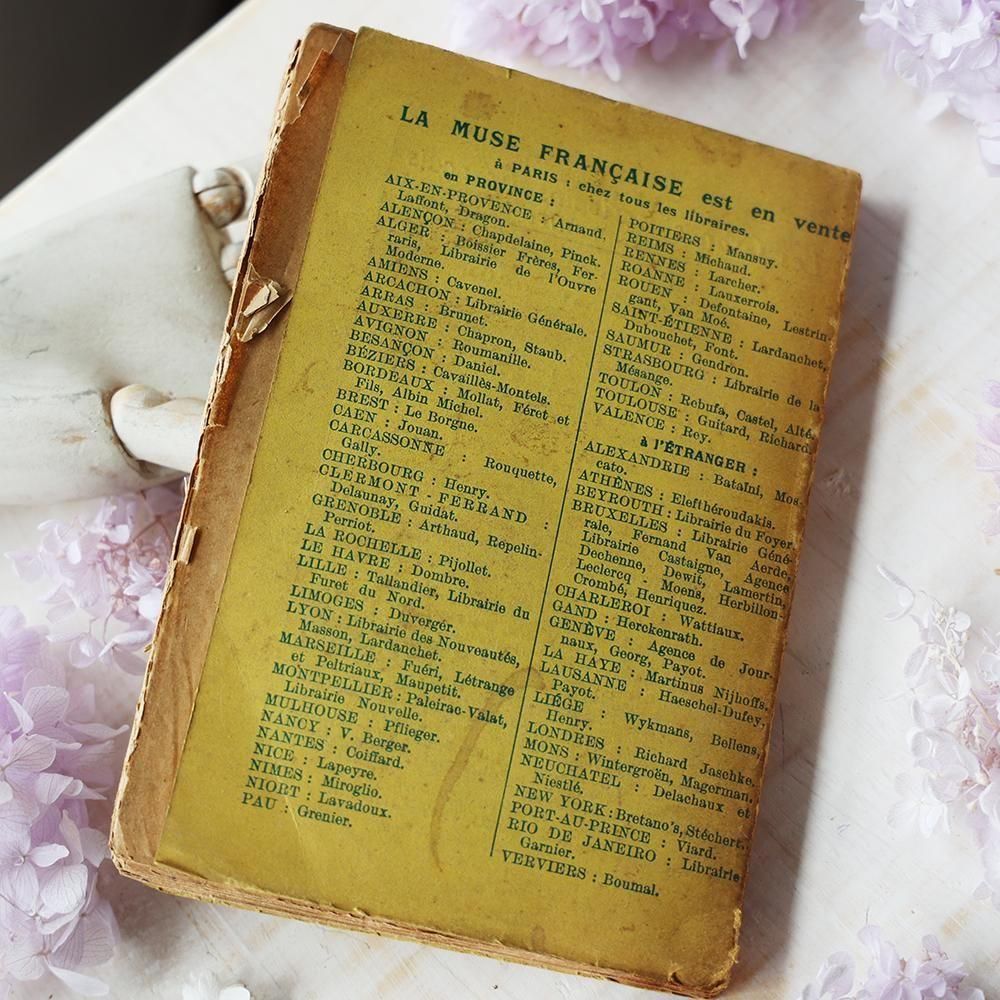 LA MUSE FRANÇAISE est en vente
à PARIS : chez tous les libraires.
en PROVINCE :
AIX-EN-PROVENCE : Arnaud,
Laffont, Dragon.
ALENÇON : Chapdelaine, Pinck.
ALGER : Boissier Frères, Fer-
raris, Librairie de l'Ouvre
Moderne.
AMIENS : Cavenel.
ARCACHON : Librairie Générale.
ARRAS : Brunet.
AUXERRE : Chapron, Staub.
AVIGNON : Roumanille.
BESANÇON : Daniel.
BÉZIERS : Cavaillès-Montels.
BORDEAUX : Mollat, Féret et
Fils, Albin Michel.
BREST : Le Borgne.
CAEN : Jouan.
CARCASSONNE : Rouquette,
Gally.
CHERBOURG : Henry.
CLERMONT - FERRAND :
Delaunay, Guidat.
GRENOBLE : Arthaud, Repelin-
Perriot.
LA ROCHELLE : Pijollet.
LE HAVRE : Dombre.
LILLE : Tallandier, Librairie du
Furet du Nord.
LIMOGES : Duvergér.
LYON : Librairie des Nouveautés,
Masson, Lardanchet.
MARSEILLE : Fuéri, Létrange
et Peltriaux, Maupetit.
MONTPELLIER : Paleirac-Valat,
Librairie Nouvelle.
MULHOUSE : Pflieger.
NANCY : V. Berger.
NANTES : Coiffard.
NICE : Lapeyre.
NIMES : Miroglio.
NIORT : Lavadoux.
PAU : Grenier.
POITIERS : Mansuy.
REIMS : Michaud.
RENNES : Larcher.
ROANNE : Lauxerrois.
ROUEN : Defontaine, Lestrin-
gant, Van Moé.
SAINT-ÉTIENNE : Lardanchet,
Dubouchet, Font.
SAUMUR : Gendron.
STRASBOURG : Librairie de la
Mésange.
TOULON : Rebufa, Castel, Alté.
TOULOUSE : Guitard, Richard.
VALENCE : Rey.
à l'ÉTRANGER :
ALEXANDRIE : Bataïni, Mos-
cato.
ATHÈNES : Elefthéroudakis.
BEYROUTH : Librairie du Foyer.
BRUXELLES : Librairie Géné-
rale, Fernand Van Aerde,
Librairie Castaigne, Agence
Dechenne, Dewit, Lamertin,
Leclercq - Moens, Herbillon-
Crombé, Henriquez.
CHARLEROI : Wattiaux.
GAND : Herckenrath
GENÈVE : Agence de Jour-
naux, Georg, Payot.
LA HAYE : Martinus Nijhoffs.
LAUSANNE : Haeschel-Dufey,
Payot.
LIÉGE : Wykmans, Bellens,
Henry.
LONDRES : Richard Jaschke.
MONS : Wintergroën, Magerman.
NEUCHATEL : Delachaux et
Niestlé.
NEW YORK : Bretano's, Stéchert.
PORT-AU-PRINCE : Viard.
RIO DE JANEIRO : Librairie
Garnier.
VERVIERS : Boumal.